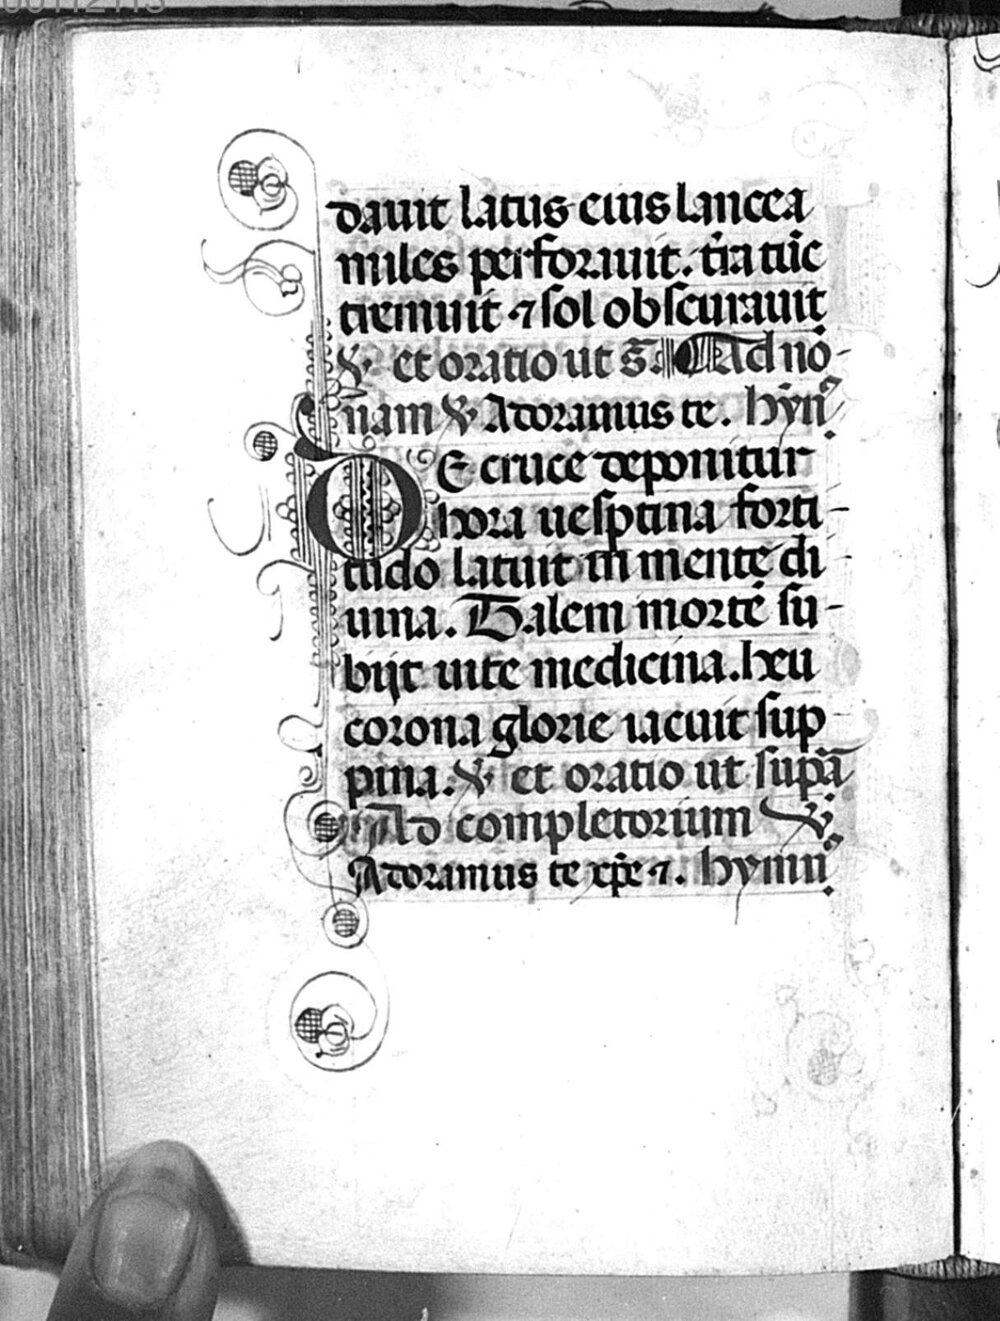 dauit latus eius lancea
miles perforauit. t̄ra tūc
tremuit ⁊ sol obscurauit
℣. et oratio ut s̄. Ad no-
nam ℣. Adoramus te. hȳn̄
DE cruce deponitur
hora uesptina forti-
tudo latuit in mente di
uina. Talem mortē su-
bijt uite medicina. heu
corona glorie iacuit sup-
pina. ℣. et oratio ut supᷓ
Ad completorium ℣.
Adoramus te xp̄e ⁊. hymn̄